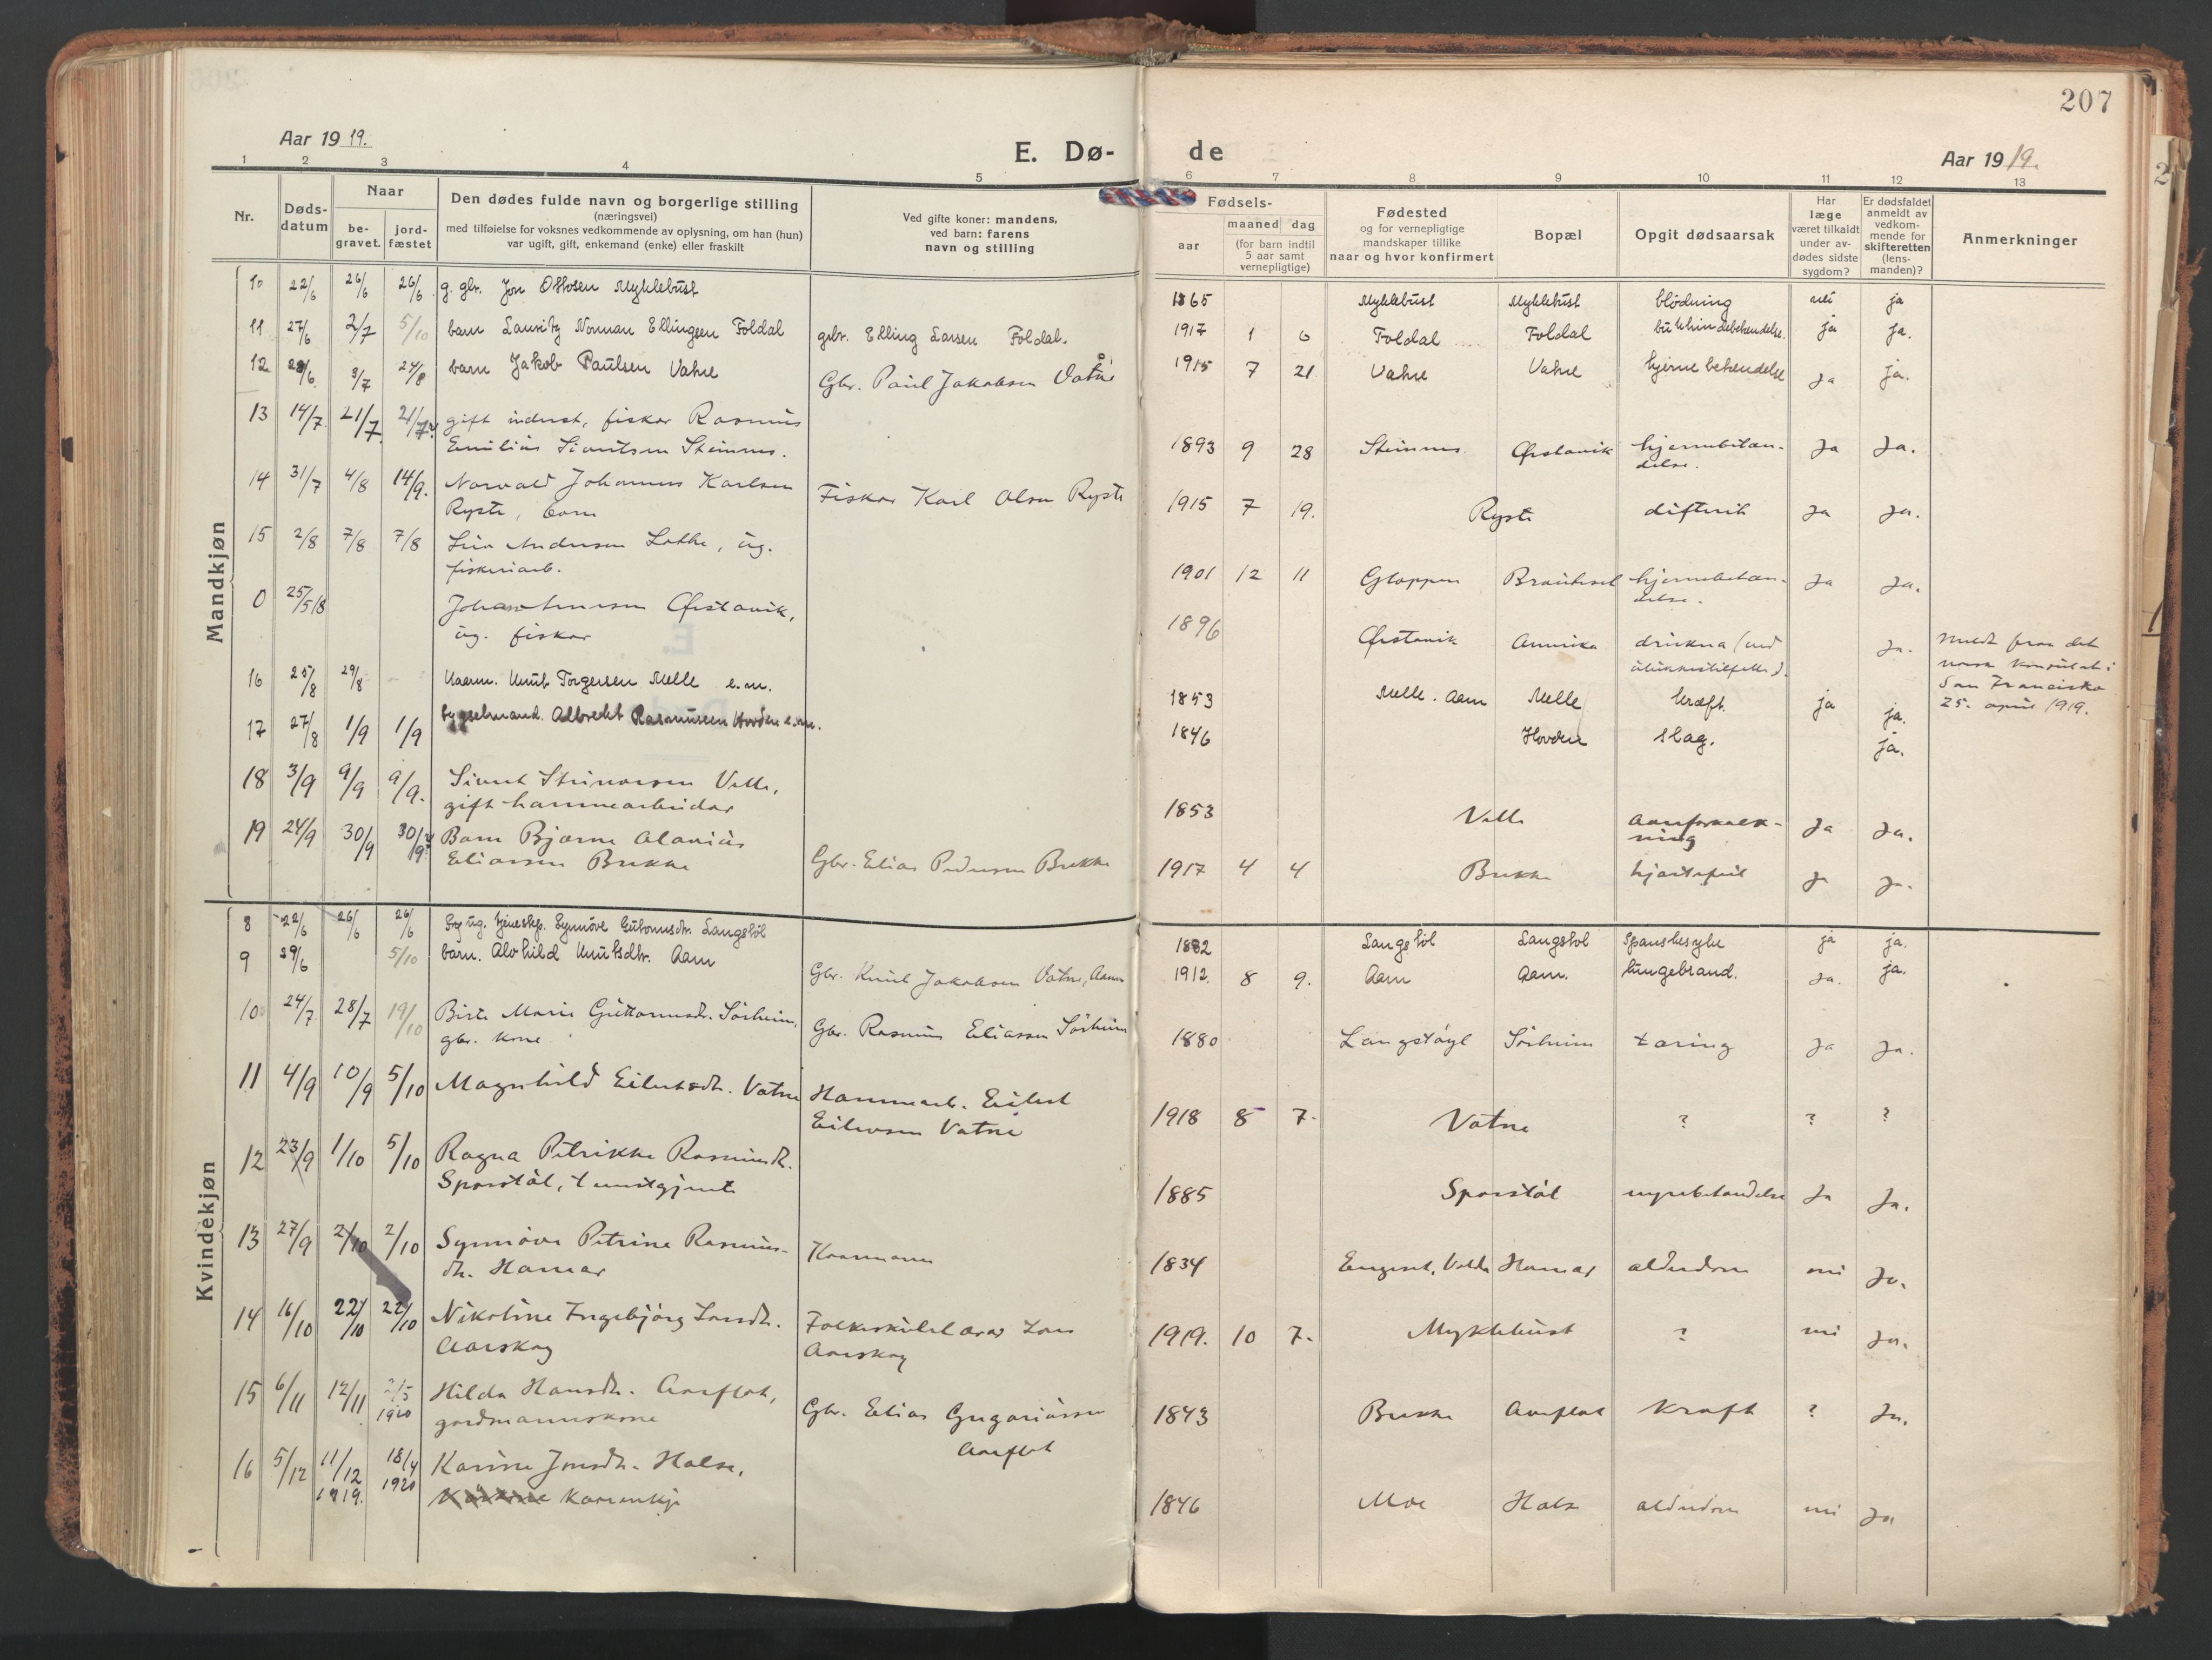 207
Aar 1919.
E. Dø-
de
Aar 1919.
1 2 3 4 5 6 7 8 9 10 11 12 13
Nr.
Døds-
datum
Naar
be-
gravet.
jord-
fæstet
Den dødes fulde navn og borgerlige stilling
(næringsvei)
med tilføielse for voksnes vedkommende av oplysning, om han (hun)
var ugift, gift, enkemand (enke) eller fraskilt
Ved gifte koner: mandens,
ved barn: farens
navn og stilling
Fødsels-
aar
maaned dag
(for barn indtil
5 aar samt
vernepligtige)
Fødested
og for vernepligtige
mandskaper tillike
naar og hvor konfirmert
Bopæl
Opgit dødsaarsak
Har
læge
været tilkaldt
under av-
dødes sidste
sygdom?
Er dødsfaldet
anmeldt av
vedkom-
mende for
skifteretten
(lens-
manden)?
Anmerkninger
Mandkjøn
10 22/6 26/6 26/6 g. gbr. Jon Ottosen Myklebust 1865 Myklebust Myklebust blødning nei ja
11 27/6 2/7 5/10 barn Lauritz Norman Ellingsen Foldal gbr. Elling Larsen Foldal. 1917 1 6 Foldal Foldal ja ja.
12 28/6 3/7 24/8 barn Jakob Paulsen Vatne Gbr. Paul Jakobsen Vatne 1915 7 21 Vatne Vatne hjerne betendelse Ja ja.
13 14/7 21/7 21/7 gift inderst, fisker Rasmus
Emilius Sivertsen Steinnes. 1893 9 28 Steinnes Ørstavik hjernebetæn-
delse. Ja Ja.
14 31/7 4/8 14/9. Norvald Johannes Karlsen
Ryste, barn Fisker Karl Olsen Ryste 1915 7 19. Ryste difterit Ja Ja.
15 2/8 7/8 7/8 Andersen Løkke, ug.
fiskeriarb. 1901 12 11 Gloppen hjernebetæn-
delse. Ja Ja.
0 25/5 18 Johan Ørstavik,
ug. fisker 1896 Ørstavik Amerika drukna (ved
ulukkestilfelle). Ja. meldt fraa det
norske konsulat i
San Francisko
25. april 1919.
16 25/8 29/8 - Kaarm. Knut Torgersen Melle e.m. 1853 Melle. Aam Melle kræft. ja ja.
17 27/8 1/9 1/9 bygselmand. Albrecht Rasmussen Hovden e.m. 1846 Hovden slag. ja.
18 3/9 9/9 9/9. Sivert Steinarsen Velle,
gift hammearbeider 1853 Velle aareforkalk-
ning Ja Ja.
19 24/9 30/9 30/9 Barn Bjarne Olavius
Eliassen Brekke Gbr. Elias Pedersen Brekke 1917 4 4 Brekke hjartefeil Ja Ja.
Kvindekjøn
8 22/6 26/6 26/6 ug. tjenestep. Synnøve Guttormsdtr. Langstøl 1882 Langstøl Langstøl Spanskesyke ja ja.
9 29/6 5/10 barn. Alvhild Knutsdtr. Aam Gbr. Knut Jakobsen Vatne, Aam 1912. 8 9. Aam Aam. lungebrand. Ja. ja.
10 24/7 28/7 19/10 Birte Marie Guttormsdr. Sørheim,
gbr. kone Gbr. Rasmus Eliassen Sørheim 1880 Langstøyl Sørheim tæring Ja Ja.
11 4/9 10/9 5/10 Magnhild Eilertsdtr. Vatne Hammearb. Eilert
Eilersen Vatne 1918 8 7. Vatne ? ? ?
12 23/9 1/10 5/10 Ragna Petrikke Rasmusdtr.
Sporstøl, 1885 Sporstøl nyrebetændelse Ja Ja.
13 27/9 2/10 2/10 Synnøve Petrine Rasmus-
dtr. Hamar Kaarmann 1834 Engeset, Volda Hamar alderdom nei Ja.
14 16/10 22/10 22/10 Nikoline Ingebjørg Larsdtr.
Aarskog Folkeskulelærar Lars
Aarskog 1919. 10 7. Myklebust ? nei Ja.
15 6/11 12/11 2/5 1920 Hilda Hansdtr. Aarflot,
gardmannskone Gbr. Elias Gregoriussen
Aarflot 1843 Brekke Aarflot Kræft ? Ja.
16 5/12 11/12 1919. 18/4 1920 Karine Jonsdtr. Halse,
kaarenkje 1846 Moe Halse alderdom nei Ja